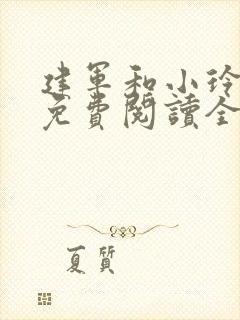 建军和小玲
免費閱讀全
夏質